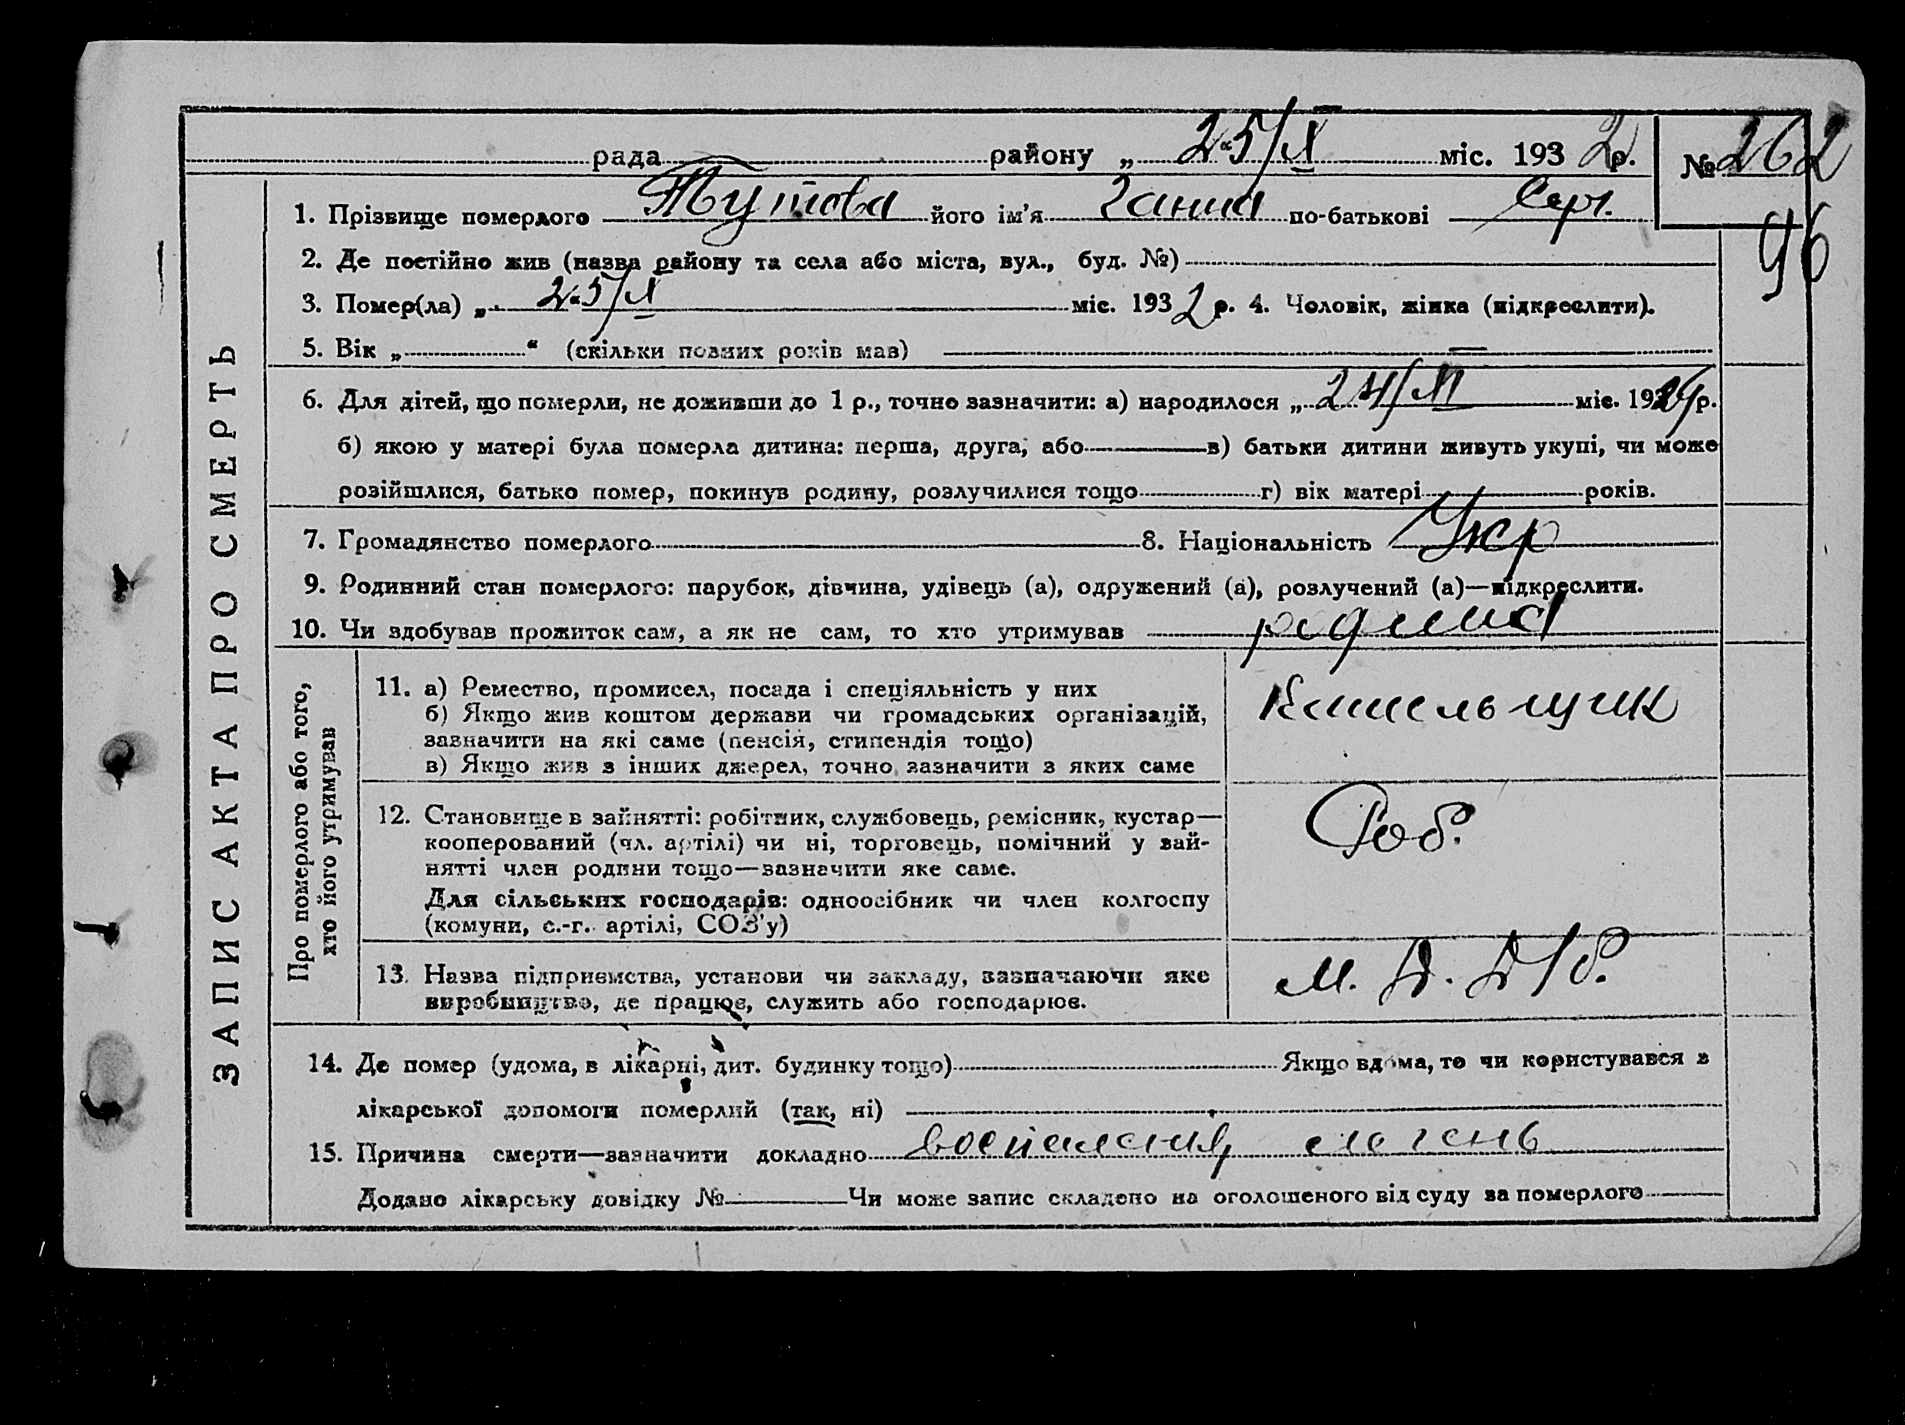 рада района „25/X міс. 1932 р. № 262
96
1. Прізвище померлого Тутова його ім'я Ганна по-батькові Серг.
2. Де постійно жив (назва району та села або міста, вул., буд. №)
3. Помер(ла) „25/X міс. 1932 р. 4. Чоловік, жінка (підкреслити).
5. Вік „ “ (скільки повних років мав)
6. Для дітей, що померли, не доживши до 1 р., точно зазначити: а) народилося „24/XI міс. 19 р.
б) якою у матері була померла дитина: перша, друга, або в) батьки дитини живуть укупі, чи може
розійшлися, батько помер, покинув родину, розлучилися тощо г) вік матері років.
7. Громадянство померлого 8. Національність Укр
9. Родинний стан померлого: парубок, дівчина, удівець (а), одружений (а), розлучений (а)—підкреслити.
10. Чи здобував прожиток сам, а як не сам, то хто утримував родина
ЗАПИС АКТА ПРО СМЕРТЬ
Про померлого або того,
хто його утримував
11. а) Ремество, промисел, посада і спеціяльність у них
б) Якщо жив коштом держави чи громадських організацій,
зазначити на які саме (пенсія, стипендія тощо)
в) Якщо жив з інших джерел, точно зазначити з яких саме
12. Становище в занятті: робітник, службовець, ремісник, кустар—
кооперований (чл. артілі) чи ні, торговець, помічний у зай-
нятті член родини тощо—зазначити яке саме.
Роб.
Для сільських господарів: одноосібник чи член колгоспу
(комуни, с.-г. артілі, СОЗ'у)
13. Назва підприємства, установи чи закладу, зазначаючи яке
виробництво, де працює, служить або господарює.
14. Де помер (удома, в лікарні, дит. будинку тощо) Якщо вдома, то чи користувався з
лікарської допомоги померлий (так, ні)
15. Причина смерти—зазначити докладно воспаления легень
Додано лікарську довідку № Чи може запис складено на оголошеного від суду за померлого